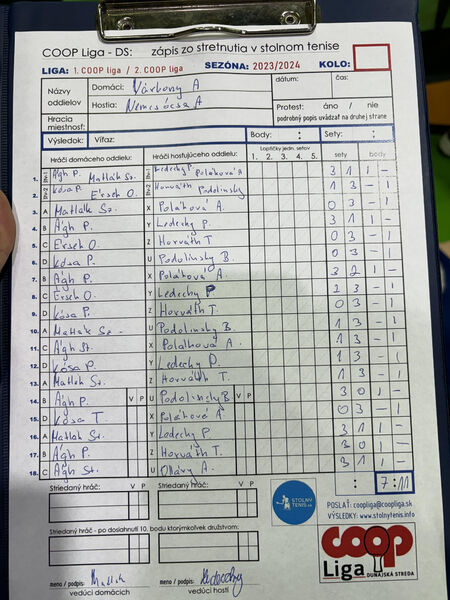 COOP Liga - DS: zápis zo stretnutia v stolnom tenise
LIGA: 1. COOP liga / 2. COOP liga SEZÓNA: 2023/2024 KOLO:
Názvy oddielov Domáci: Várkony A dátum: čas:
Hostia: Nemesócsa A
Hracia miestnosť: Protest: áno / nie
podrobný popis uvádzať na druhej strane
Výsledok: Víťaz: Body: : Sety: :
Hráči domáceho oddielu: Hráči hosťujúceho oddielu: Loptičky jedn. setov sety body
1. 2. 3. 4. 5.
1. Ágh P. Matlák Sz. Ledecky P. Poláková A 3 1 1 -
2. Kósa P. Érsek O. Horváth Podolinsky 1 3 - 1
3. A Matlák Sz. X Poláková A. 0 3 - 1
4. B Ágh P. Y Ledecky P. 3 1 1 -
5. C Érsek O. Z Horváth T 0 3 - 1
6. D Kósa P. U Podolinsky B. 0 3 - 1
7. B Ágh P. X Poláková A. 3 2 1 -
8. C Érsek O. Y Ledecky P 2 3 - 1
9. D Kósa P. Z Horváth T 0 3 - 1
10. A Matlák Sz. U Podolinsky B. 1 3 - 1
11. C Ágh St. X Poláková A. 1 3 - 1
12. D Kósa P. Y Ledecky P. 1 3 - 1
13. A Matlák Sz. Z Horváth T. 1 3 - 1
14. B Ágh P. V P U Podolinsky B V P 3 0 1 -
15. D Kósa T X Poláková A. 0 3 - 1
16. A Matlák Sz. Y Ledecky P. 3 1 1 -
17. B Ágh P. Z Horváth T. 3 0 1 -
18. C Ágh St. U A. 3 1 1 -
7 : 11
Striedaný hráč: V P Striedaný hráč: V P
STOLNÝ
TENIS.sk
POSLAŤ: coopliga@coopliga.sk
VÝSLEDKY: www.stolnytenis.info
Striedaný hráč - po dosiahnutí 10. bodu ktorýmkoľvek družstvom:
V P V P
coop
Liga DUNAJSKÁ STREDA
meno / podpis: Matlák meno / podpis: Ledecky
vedúci domácich vedúci hostí